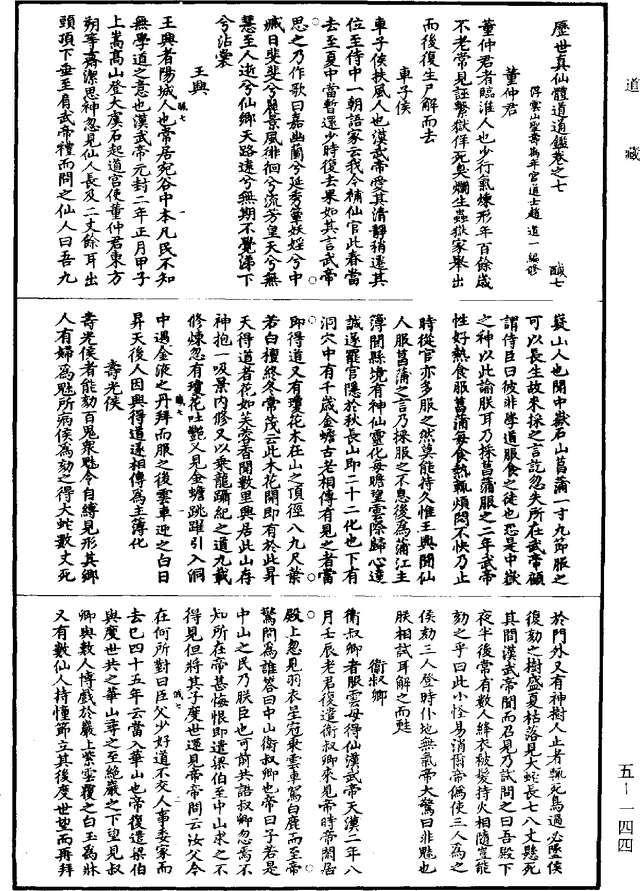 道藏
歷世真仙體道通鑑卷之七 醎七
浮雲山聖壽萬年宮道士趙道一編修
董仲君
董仲君者臨淮人也少行氣煉形年百餘歲
不老常見誣繫獄佯死臭爛生蟲獄家舉出
而後復生尸解而去
車子侯
車子侯扶風人也漢武帝愛其清靜稍遷其
位至侍中一朝語家云我今補仙官此春當
去至夏中當暫還少時復去果如其言武帝
思之乃作歌曰嘉幽蘭兮延秀蕈妖婬兮中
溏日斐斐兮麗景風徘徊兮流芳望天兮無
慧至人逝兮仙鄉天路遠兮無期不覺涕下
兮沾裳
王興
王興者陽城人也常居宛谷中本凡民不知
無學道之意也漢武帝元封二年正月甲子
上嵩高山登大虞石起道宮使董仲君東方
朔等齋潔思神忽見仙人長及二丈餘耳出
頭頂下垂至肩武帝禮而問之仙人曰吾九
嶷山人也聞中嶽石上菖蒲一寸九節服之
可以長生故來採之言訖忽失所在武帝顧
謂侍臣曰彼非學道服食之徒也恐是中嶽
之神以此諭朕耳乃採菖蒲服之二年武帝
性好熱食服菖蒲每食熱輒煩悶不快乃止
時從官亦多服之然莫能持久惟王興聞仙
人服菖蒲之言乃採服之不息後為蒲江主
簿聞縣境有神仙靈化每瞻望雲際歸心達
誠遂罷官隱於秋長山即二十二化也下有
洞穴中有千歲金蟾古老相傳有見之者當
即得道又有瓊花木在山之頂徑八九尺葉
若白檀終冬常茂云此木花開即有於此昇
天得道者花如芙蓉香聞數里興居此山存
神抱一吸景內修又以乘龍躡紀之道九載
修煉忽有瓊花上艷又見金蟾跳躍引入洞
中遇金液之丹拜而服之後雲車迎之白日
昇天後人因興得道遂相傳為主薄化
壽光侯
壽光侯者能劾百鬼眾魅令自縛見形其鄉
人有婦為魅所病侯為劾之得大蛇數丈死
於門外又有神樹人止者輒死鳥過必墜侯
復劾之樹盛夏枯落見大蛇長七八丈懸死
其間漢武帝聞而召見乃試問之曰吾殿下
夜半後常有數人絳衣被髮持火相隨豈能
劾之乎曰此小怪易消爾帝偽使三人為之
侯劾三人登時仆地無氣帝大驚曰非魅也
朕相試耳解之而甦
衛叔卿
衛叔卿者服雲母得仙漢武帝天漢二年八
月壬辰老君復遣衛叔卿來見帝時帝閑居
殿上忽見羽衣星冠乘雲車駕白鹿而至帝
驚問為誰答曰中山衛叔卿也帝曰子若是
中山之民乃朕臣也可前共語叔卿忽焉不
知所在帝甚悔恨即遣梁伯至中山求之不
得見但將其子度世還見帝帝問云汝父今
在何所對曰臣父少好道不交人事委家而
去已四十五年云當入華山也帝復遣梁伯
與度世共之華山尋之至絕巖之下望見叔
卿與數人博戲於巖上紫雲覆之白玉為牀
又有數仙人持幢節立其後度世望而再拜
五—一四四